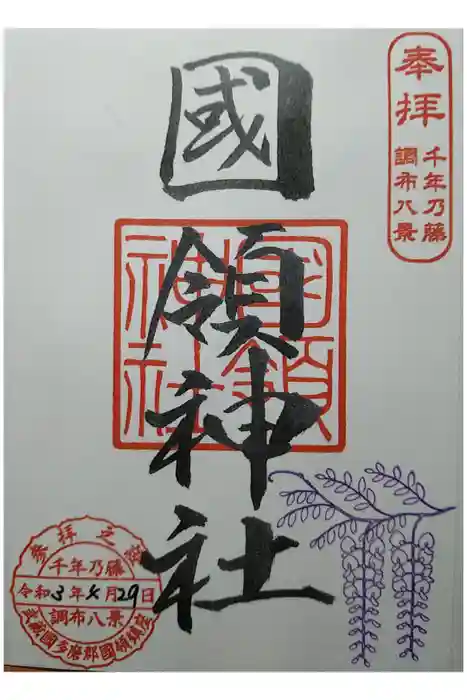 奉拝
千年乃藤
調布八景
國領神社
國領神社
参拝之證
千年乃藤
令和3年4月29日
調布八景
武蔵國多磨郡國領鎮座